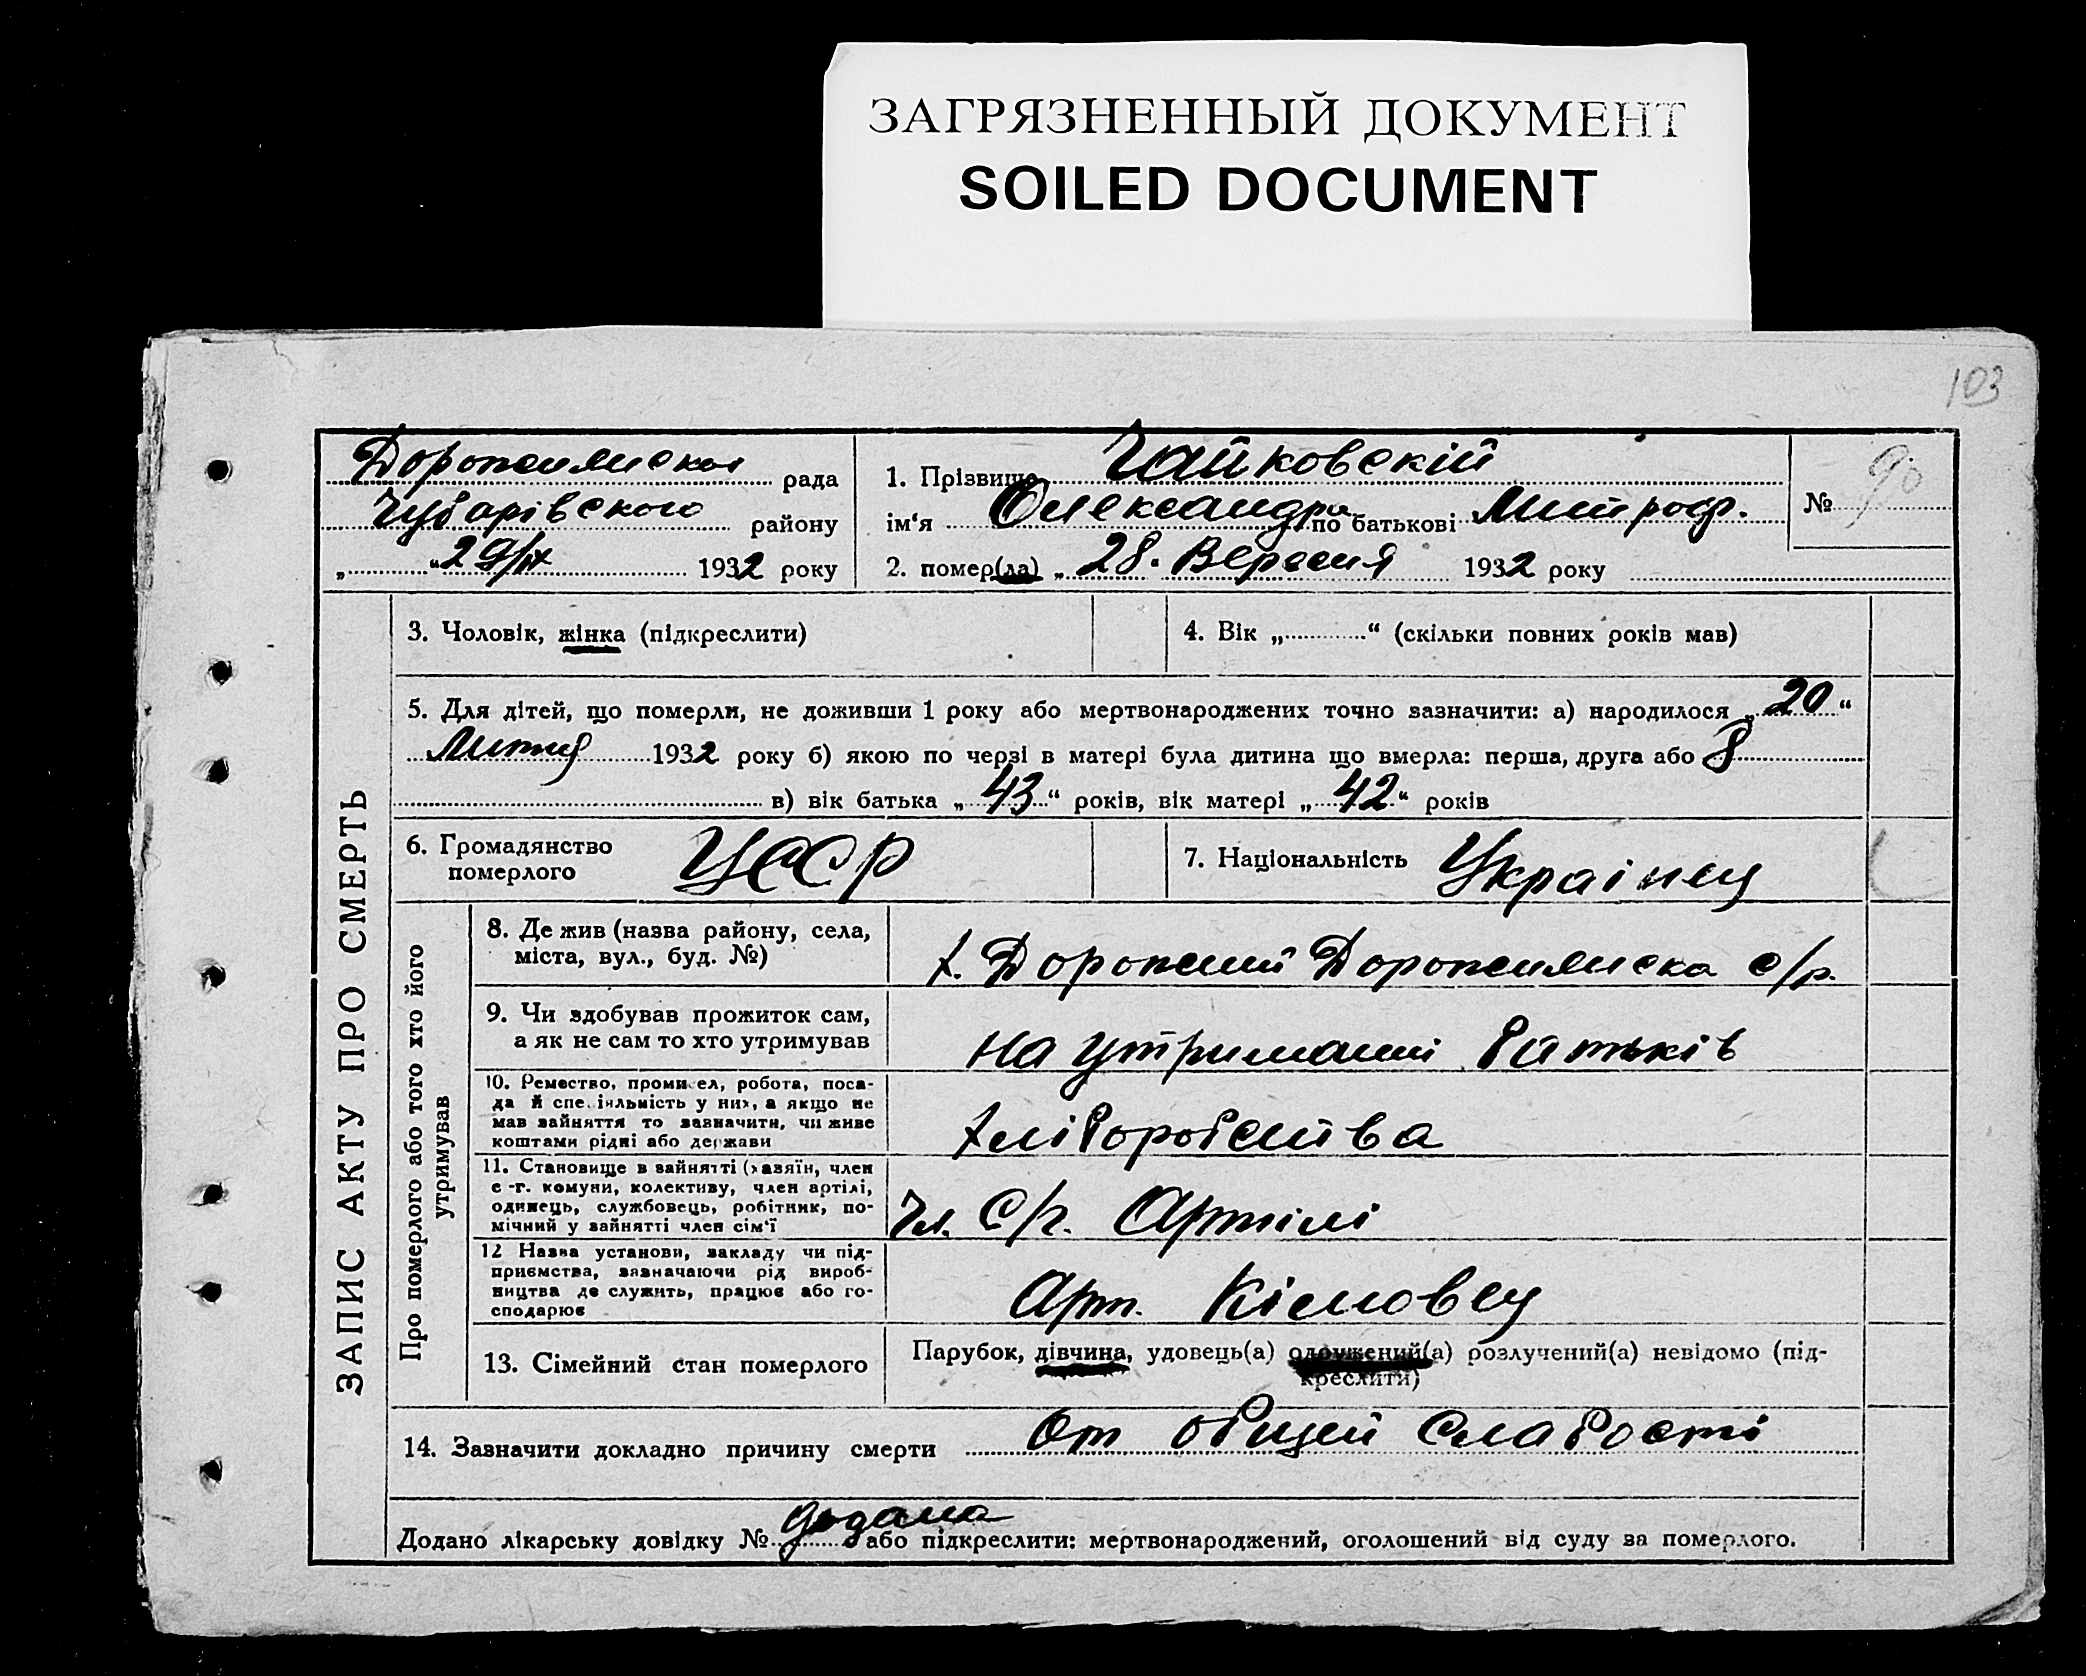 ЗАГРЯЗНЕННЫЙ ДОКУМЕНТ
SOILED DOCUMENT
103
Дорожилиская рада
Чубарівського району
„ “ 29/IX 1932 року
1. Прізвище Чайковскій
ім‘я Олександра по батькові Митроф.
2. помер(ла) „ 28. Вересня 1932 року
№ 90
ЗАПИС АКТУ ПРО СМЕРТЬ
3. Чоловік, жінка (підкреслити)
4. Вік „ “ (скільки повних років мав)
5. Для дітей, що померли, не доживши 1 року або мертвонароджених точно зазначити: а) народилося „ 20 “
Липня 1932 року б) якою по черзі в матері була дитина що вмерла: перша, друга або 8
в) вік батька „ 43 “ років, вік матері „ 42 “ років
6. Громадянство
померлого УССР
7. Національність Украінец
Про померлого або того хто його
утримував
8. Де жив (назва району, села,
міста, вул., буд. №)
х. с/р.
9. Чи здобував прожиток сам,
а як не сам то хто утримував
на утриманні батьків
10. Ремество, промисел, робота, поса-
да й спеціяльність у них, а якщо не
мав зайняття то зазначити, чи живе
коштами рідні або держави
хліборобства
11. Становище в зайнятті (хазяїн, член
с.-г. комуни, колективу, член артілі,
одинець, службовець, робітник, по-
мічний у зайнятті член сім‘ї
Чл. С/г. Артілі
12 Назва установи, закладу чи під-
приємства, зазначаючи рід вироб-
ництва де служить, працює або го-
сподарює
Арт. Кімовец
13. Сімейний стан померлого
Парубок, дівчина, удовець(а) одружений(а) розлучений(а) невідомо (під-
креслити)
14. Зазначити докладно причину смерти От общей слабості
Додано лікарську довідку № додана або підкреслити: мертвонароджений, оголошений від суду за померлого.